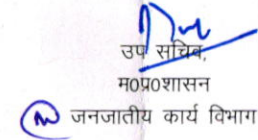 उप सचिव,
म0प्र0शासन
जनजातीय कार्य विभाग